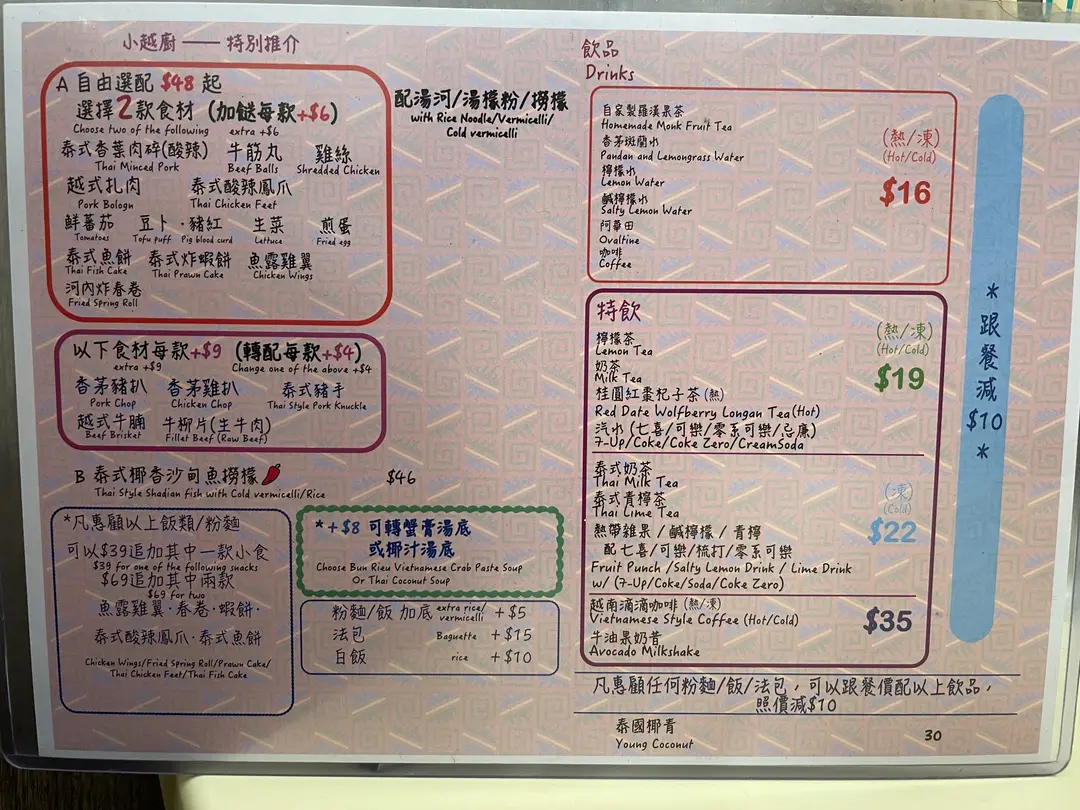 小越廚 —— 特別推介
A 自由選配 $48 起
選擇2款食材 (加餸每款+$6)
Choose two of the following extra +$6
泰式香葉肉碎(酸辣) 牛筋丸 雞絲
Thai Minced Pork Beef Balls Shredded Chicken
越式扎肉 泰式酸辣鳳爪
Pork Bologn Thai Chicken Feet
鮮蕃茄 豆卜・豬紅 生菜 煎蛋
Tomatoes Tofu puff Pig blood curd Lettuce Fried egg
泰式魚餅 泰式炸蝦餅 魚露雞翼
Thai Fish Cake Thai Prawn Cake Chicken Wings
河內炸春卷
Fried Spring Roll
配湯河/湯檬粉/撈檬
with Rice Noodle/Vermicelli/
Cold vermicelli
以下食材每款+$9 (轉配每款+$4)
extra +$9 Change one of the above +$4
香茅豬扒 香茅雞扒 泰式豬手
Pork Chop Chicken Chop Thai Style Pork Knuckle
越式牛腩 牛柳片(生牛肉)
Beef Brisket Fillet Beef (Raw Beef)
B 泰式椰香沙甸魚撈檬 $46
Thai Style Shadian fish with Cold vermicelli/Rice
*凡惠顧以上飯類/粉麵
可以$39追加其中一款小食
$39 for one of the following snacks
$69追加其中兩款
$69 for two
魚露雞翼・春卷・蝦餅・
泰式酸辣鳳爪・泰式魚餅
Chicken Wings/Fried Spring Roll/Prawn Cake/
Thai Chicken Feet/Thai Fish Cake
*+$8 可轉蟹膏湯底
或椰汁湯底
Choose Bun Rieu Vietnamese Crab Paste Soup
Or Thai Coconut Soup
粉麵/飯 加底 extra rice/vermicelli +$5
法包 Baguette +$15
白飯 rice +$10
飲品
Drinks
自家製羅漢果茶
Homemade Monk Fruit Tea
香茅斑蘭水
Pandan and Lemongrass Water
檸檬水
Lemon Water
鹹檸檬水
Salty Lemon Water
阿華田
Ovaltine
咖啡
Coffee
(熱/凍)
(Hot/Cold)
$16
特飲
檸檬茶
Lemon Tea
奶茶
Milk Tea
桂圓紅棗杞子茶(熱)
Red Date Wolfberry Longan Tea(Hot)
汽水 (七喜/可樂/零系可樂/忌廉)
7-Up/Coke/Coke Zero/CreamSoda
(熱/凍)
(Hot/Cold)
$19
泰式奶茶
Thai Milk Tea
泰式青檸茶
Thai Lime Tea
熱帶雜果 / 鹹檸檬 / 青檸
配七喜/可樂/梳打/零系可樂
Fruit Punch /Salty Lemon Drink / Lime Drink
w/ (7-Up/Coke/Soda/Coke Zero)
(凍)
(Cold)
$22
越南滴滴咖啡 (熱/凍)
Vietnamese Style Coffee (Hot/Cold)
牛油果奶昔
Avocado Milkshake
$35
*跟餐減$10*
凡惠顧任何粉麵/飯/法包，可以跟餐價配以上飲品，
照價減$10
泰國椰青
Young Coconut
30